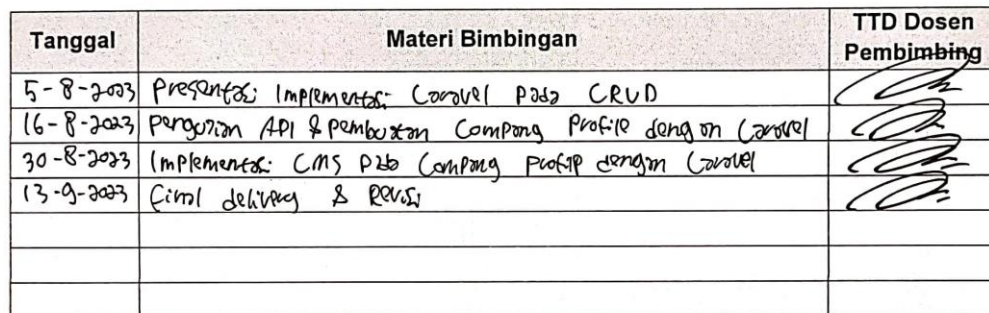 Tanggal Materi Bimbingan TTD Dosen Pembimbing
5-8-2023 Presentasi Implementasi Laravel pada CRUD
16-8-2023 Pengujian API & Pembuatan Company Profile dengan Laravel
30-8-2023 Implementasi CMS pada Company Profile dengan Laravel
13-9-2023 Final delivery & Revisi